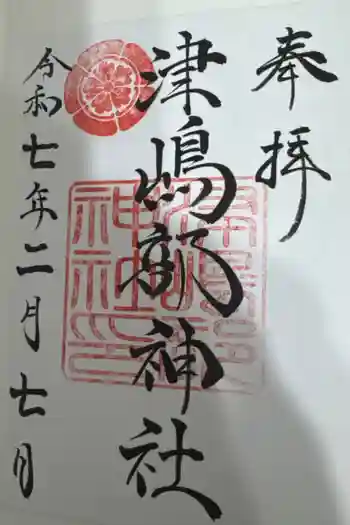 奉拝
津嶋部神社
令和七年二月七月